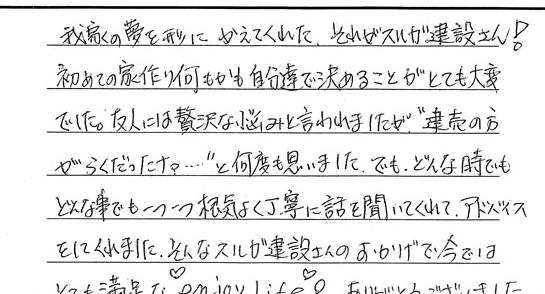 我家の夢を形にかえてくれた、それがスルガ建設さん!
初めての家作り何もかも自分達で決めることがとても大変
でした。友人には贅沢な悩みと言われましたが、"建売の方
がらくだったナァ……"と何度も思いました。でも、どんな時でも
どんな事でも一つ一つ根気よく丁寧に話を聞いてくれて、アドバイス
をしてくれました。そんなスルガ建設さんのおかげで今では
とても満足な♡enjoy life♡!ありがとうございました